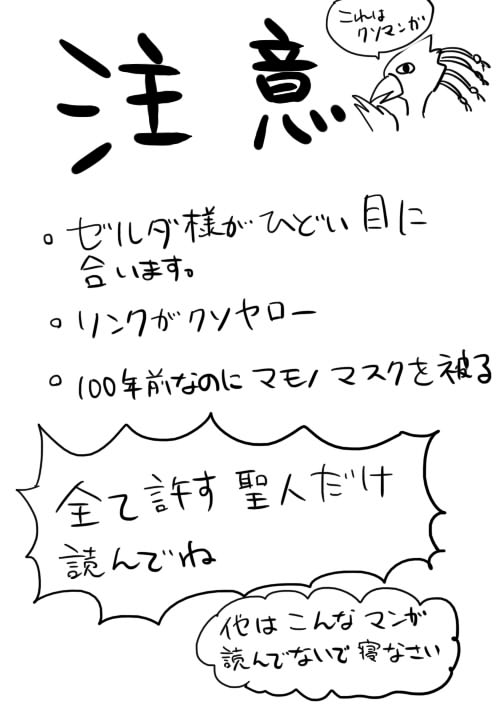 これは
クソマンガ
注意
ゼルダ様がひどい目に
合います。
リンクがクソヤロー
100年前なのにマモノマスクを被る
全て許す聖人だけ
読んでね
他はこんなマンガ
読んでないで寝なさい